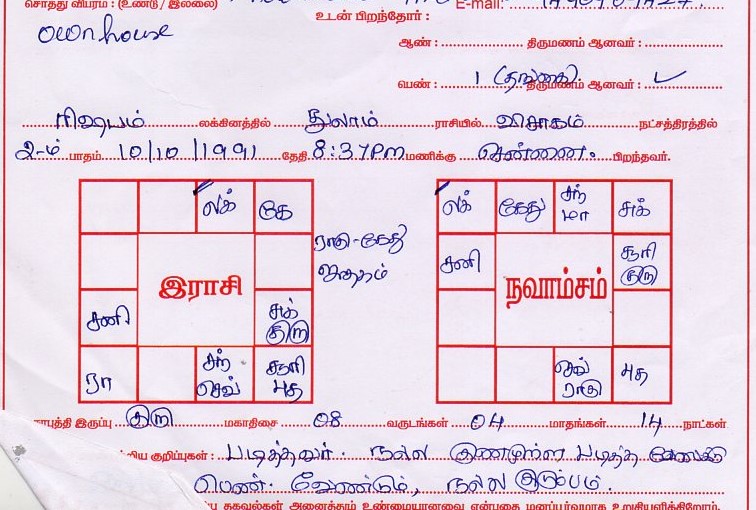 சொத்து விபரம் : (உண்டு / இல்லை) E-mail:
own house
உடன் பிறந்தோர் :
ஆண் : திருமணம் ஆனவர் :
பெண் : 1 (தங்கை) திருமணம் ஆனவர் : ✓
ரிஷபம் லக்கினத்தில் துலாம் ராசியில் விசாகம் நட்சத்திரத்தில்
2-ம் பாதம் 10/10/1991 தேதி 8:37 PM மணிக்கு சென்னை. பிறந்தவர்.
லக் கே
சனி சுக் குரு
ரா சந் செவ் சூரி புத
இராசி
ராகு - கேது
ஜாதகம்
லக் கேது சந் மா சுக்
சனி சூரி குரு
செவ் ராகு புத
நவாம்சம்
இருப்பு குரு மகாதிசை 08 வருடங்கள் 04 மாதங்கள் 14 நாட்கள்
குறிப்புகள் : படித்தவர். நல்ல குணமுள்ள படித்த
பெண் வேண்டும், நல்ல குடும்பம்.
தகவல்கள் அனைத்தும் உண்மையானவை என்பதை மனப்பூர்வமாக உறுதியளிக்கிறேன்.